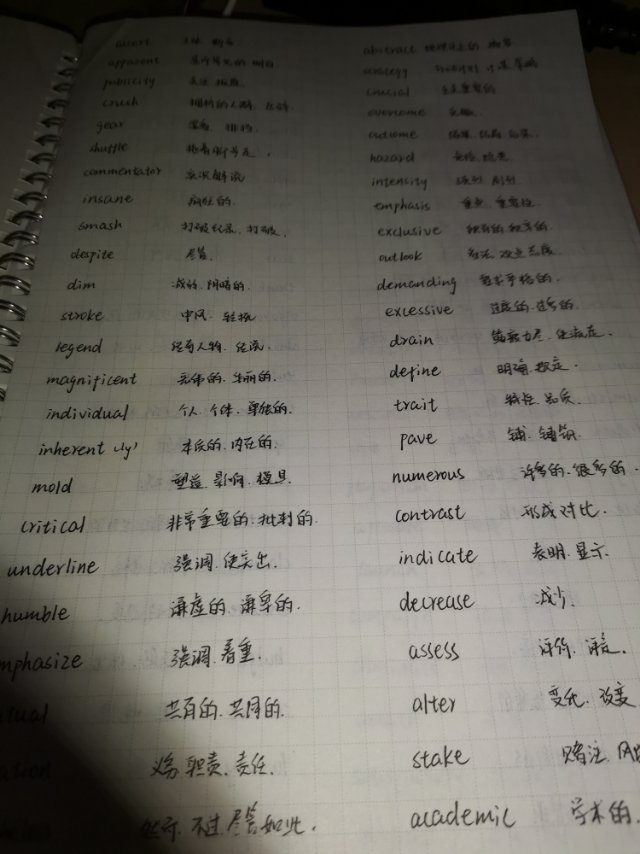 assert
apparent 显而易见的 明白
publicity 关注 报道
crush
gear
shuffle
commentator 实况解说
insane 疯狂的.
smash 打破纪录. 打破.
despite 尽管.
dim 减弱. 阴暗的.
stroke 中风. 轻抚
legend 传奇人物. 传说.
magnificent 宏伟的. 华丽的.
individual 个人. 个体. 单独的.
inherent (ly) 本质的. 内在的.
mold 塑造. 影响. 模具.
critical 非常重要的. 批判的.
underline 强调. 使突出.
humble 谦虚的. 谦卑的.
mphasize 强调. 着重.
utual 共有的. 共同的.
ation 义务. 职责. 责任.
然而. 不过. 尽管如此.
abstract
strategy
crucial 至关重要的
overcome 克服.
outcome 结果. 结局. 后果.
hazard
intensity
emphasis 重点. 重要性.
exclusive 独有的
outlook
demanding 要求严格的.
excessive 过度的. 过多的.
drain
define 明确. 规定.
trait 特征. 品质.
pave 铺. 铺筑.
numerous 许多的. 很多的.
contrast 形成对比.
indicate 表明. 显示.
decrease 减少.
assess 评价. 评定.
alter 变化. 改变
stake 赌注.
academic 学术的.